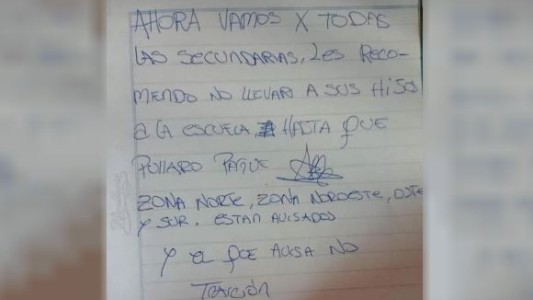 AHORA VAMOS X TODAS
LAS SECUNDARIAS, LES RECO-
MENDO NO LLEVAR A SUS HIJOS
A LA ESCUELA, HASTA QUE
PULLARO PAGUE
ZONA NORTE, ZONA NOROESTE, OESTE
Y SUR. ESTAN AVISADOS
Y EL QUE AVISA NO
TRAICION